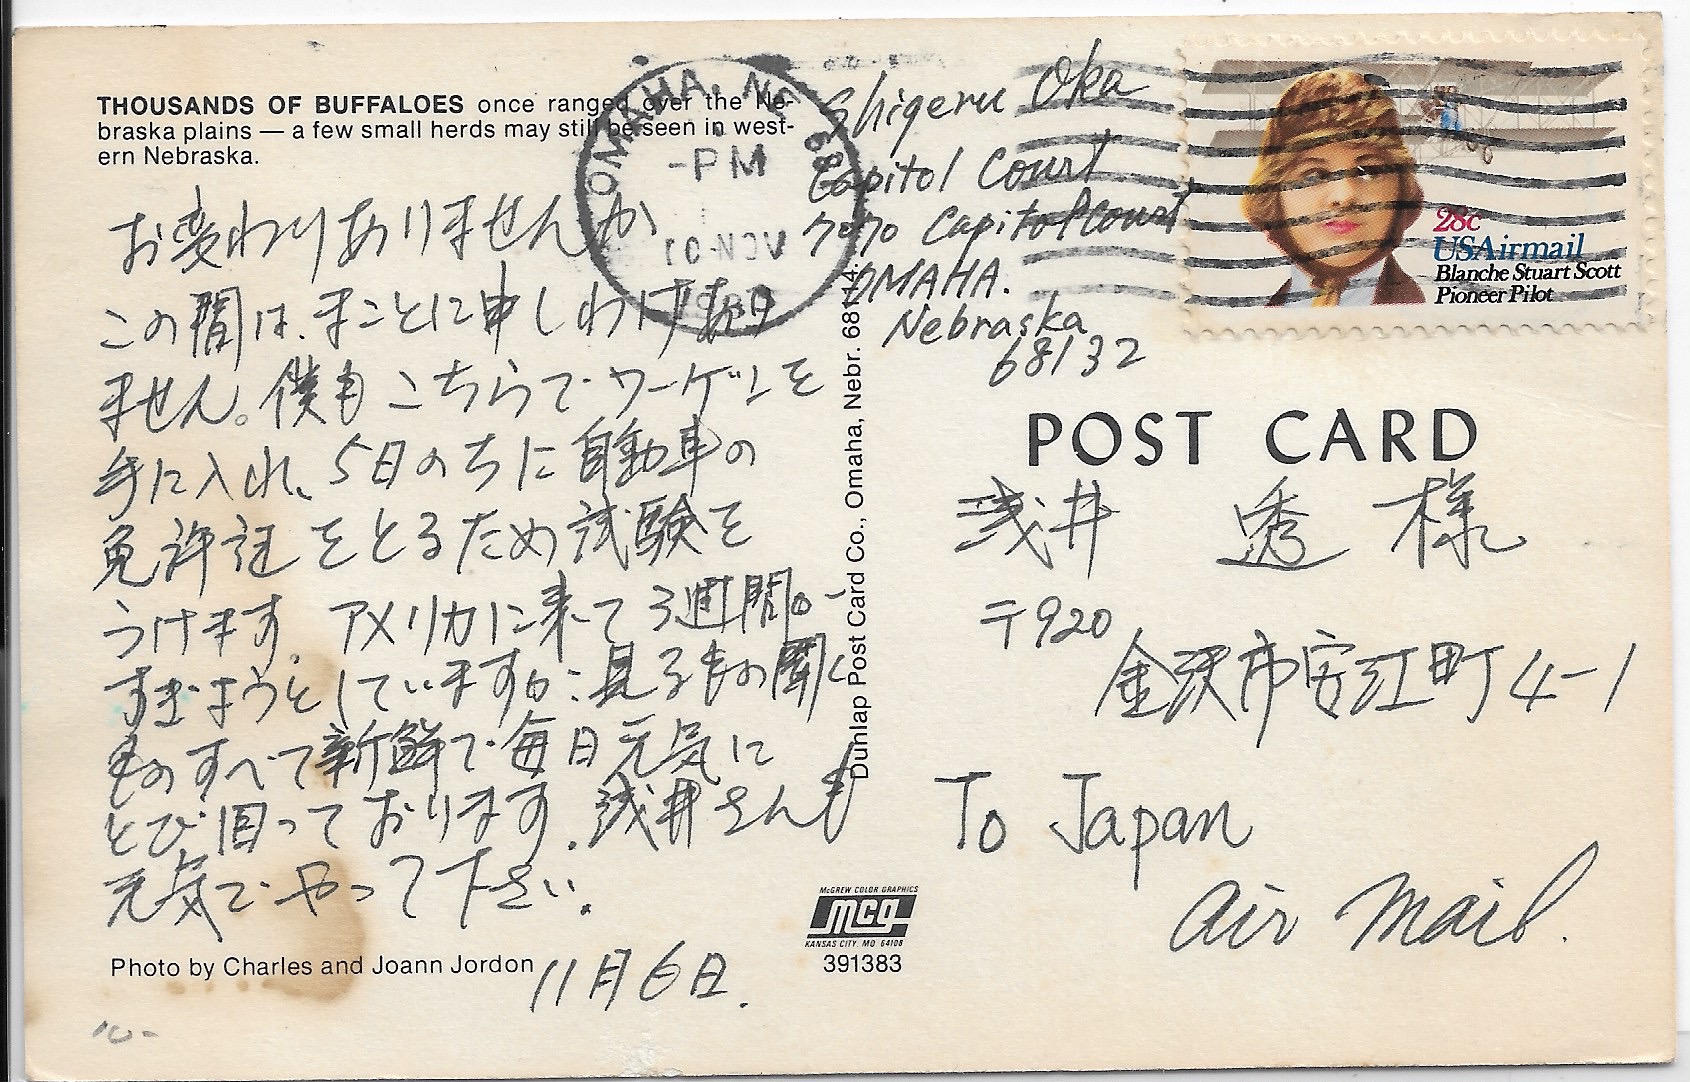 THOUSANDS OF BUFFALOES once ranged over the Ne-
braska plains — a few small herds may still be seen in west-
ern Nebraska.
お変わりありませんか
この間は、まことに申しわけあり
ません。僕もこちらでワーゲンを
手に入れ、5日のちに自動車の
免許証をとるため試験を
うけます。アメリカに来て3週間が
すぎようとしていますが、見るもの聞く
ものすべて新鮮で毎日元気に
とび回っております。浅井さんも
元気でやって下さい。
11月6日.
Photo by Charles and Joann Jordon
OMAHA, NE 681
-PM
10 NOV
Dunlap Post Card Co., Omaha, Nebr. 68114.
McGREW COLOR GRAPHICS
mcg
KANSAS CITY, MO 64108
391383
Shigeru Oka
Capitol Court
7070 Capitol Court
OMAHA.
Nebraska
68132
28c
USAirmail
Blanche Stuart Scott
Pioneer Pilot
POST CARD
浅井 透様
〒920
金沢市安江町4-1
To Japan
Air Mail.